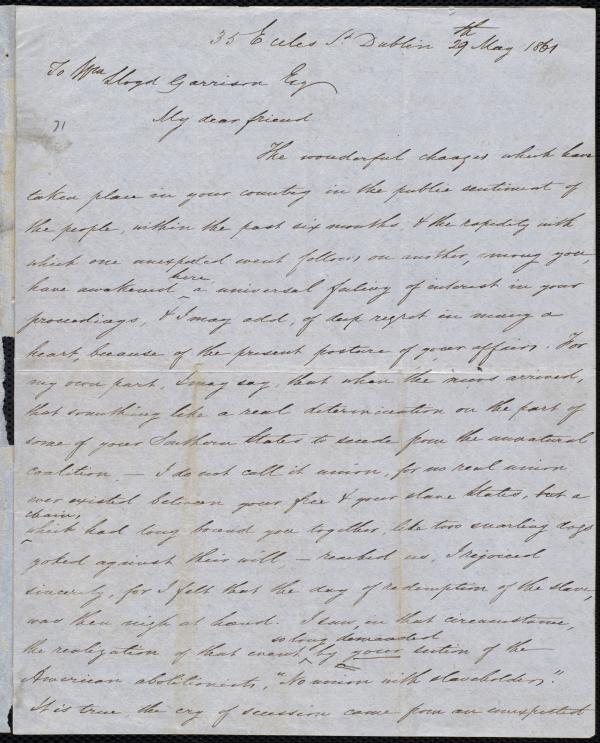 35 Eccles St Dublin 29th May 1861
To Wm Lloyd Garrison Esq
71
My dear friend
The wonderful changes which have
taken place in your country in the public sentiment of
the people, within the past six months, & the rapidity with
which one unexpected event follows on another, among you,
here
have awakened ^ a universal feeling of interest in your
proceedings, & I may add, of deep regret in many a
heart, because of the present posture of your affairs. For
my own part, I may say, that when the news arrived,
that something like a real determination on the part of
some of your Southern States to secede from the unnatural
coalition — I do not call it union, for no real union
ever existed between your free & your slave States, but a
chain,
^ which had long bound you together, like two snarling dogs
yoked against their will, — reached us, I rejoiced
sincerely, for I felt that the day of redemption of the slave,
was then nigh at hand. I saw, in that circumstance,
so long demanded
the realization of that event, ^ by your section of the
American abolitionists, "No union with slaveholders."
It is true the cry of secession came from an unexpected